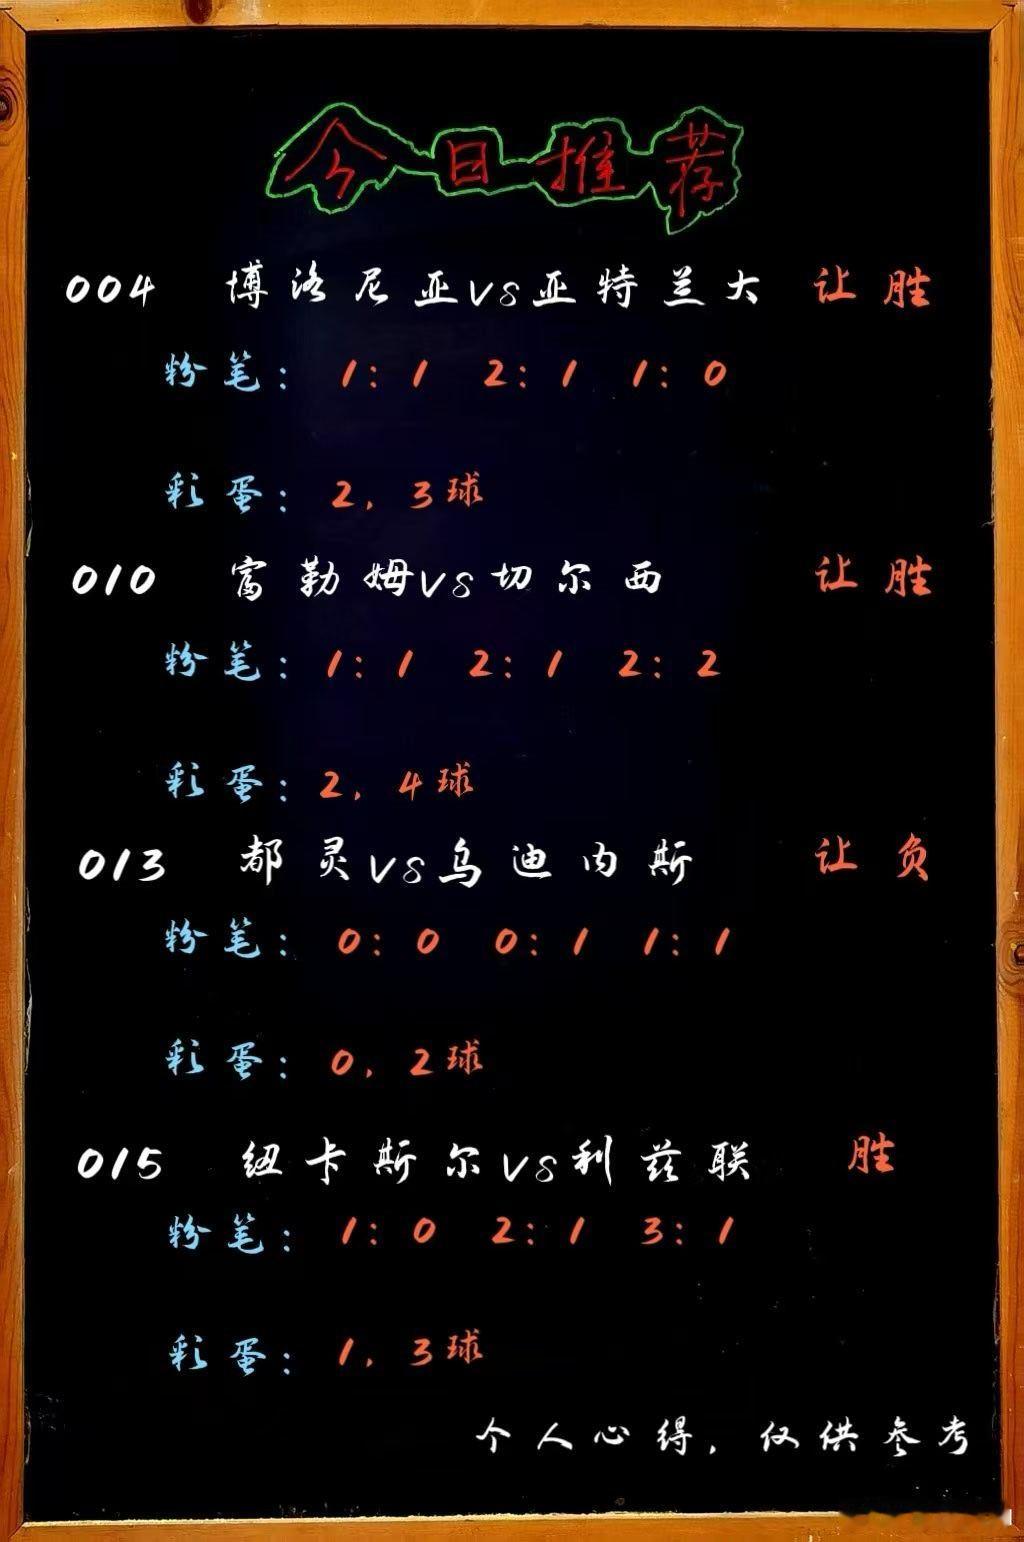 今日推荐
004 博洛尼亚vs亚特兰大 让胜
粉笔: 1:1 2:1 1:0
彩蛋: 2, 3球
010 富勒姆vs切尔西 让胜
粉笔: 1:1 2:1 2:2
彩蛋: 2, 4球
013 都灵vs乌迪内斯 让负
粉笔: 0:0 0:1 1:1
彩蛋: 0, 2球
015 纽卡斯尔vs利兹联 胜
粉笔: 1:0 2:1 3:1
彩蛋: 1, 3球
个人心得, 仅供参考